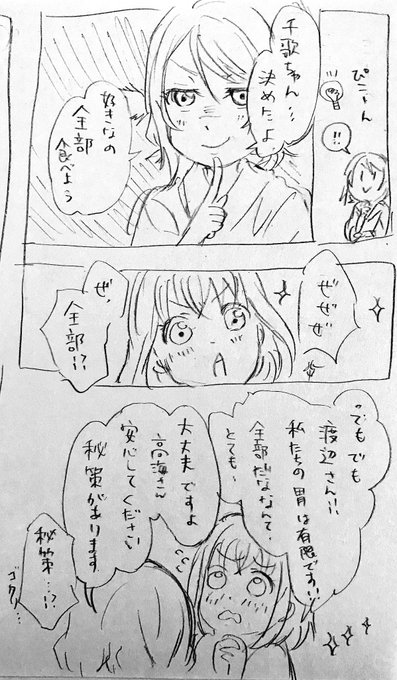 ぴこーん
!!
千歌ちゃん…
決めたよ
好きなの
全部
食べよう
ぜぜぜ
ぜ、
全部!?
でもでも
渡辺さん!!
私たちの胃は有限です!!
全部だななんて、
とても、
大丈夫ですよ
高海さん
安心してください
秘策があります
秘策…!?
ゴクリ…